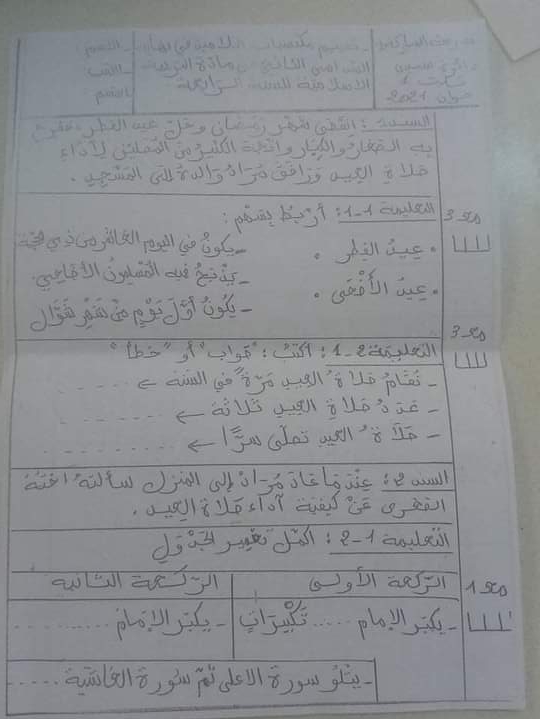 مدرسة
دائرة
2021
تقييم مكتسبات التلاميذ في نهاية
الثلاثي الثاني في مادة التربية
الاسلامية للسنة الرابعة
الاسم:
اللقب:
القسم
السند 1: انقضى شهر رمضان وحلّ عيد الفطر، ففرح
به الصّغار والكبار واتّجه الكثير من المصلّين لأداء
صلاة العيد ورافق مراد والده إلى المسجد.
التعليمة 1-1: أربط بسهم:
مع 3
• عيدُ الفِطر •
• عيدُ الأَضْحَى •
- يكونُ في اليوم العاشر من ذي الحجّة
- يَذبَحُ فيه المُسلِمونَ الأضاحي.
- يكُونُ أوّلَ يَوْمٍ منْ شَهْرِ شَوّال
مع 3
التعليمة 2-1: أكتبُ: "صواب" أو "خطأ"
- تقامُ صلاةُ العيدِ مَرّةً في السّنة ← ......
- عددُ صلاةِ العيدِ ثلاثة ← ........
- صَلاةُ العيد تصلّى سرًّا ← ........
السند 2: عِنْدَمَا عَادَ مُرَادْ إلى المنزل سألتهُ أختهُ
الصّغرى عَنْ كيفية أداء صلاة العيد.
التعليمة 1-2: أكمل تعمير الجدول
مع 1
الرّكعة الأولى
الرّكعة الثانية
- يكبّر الإمام ..... تَكْبِيرَاتٍ
- يكبّر الإمَام .........
- يتلُو سورة الاعلى ثمّ سُورة الغاشية .....